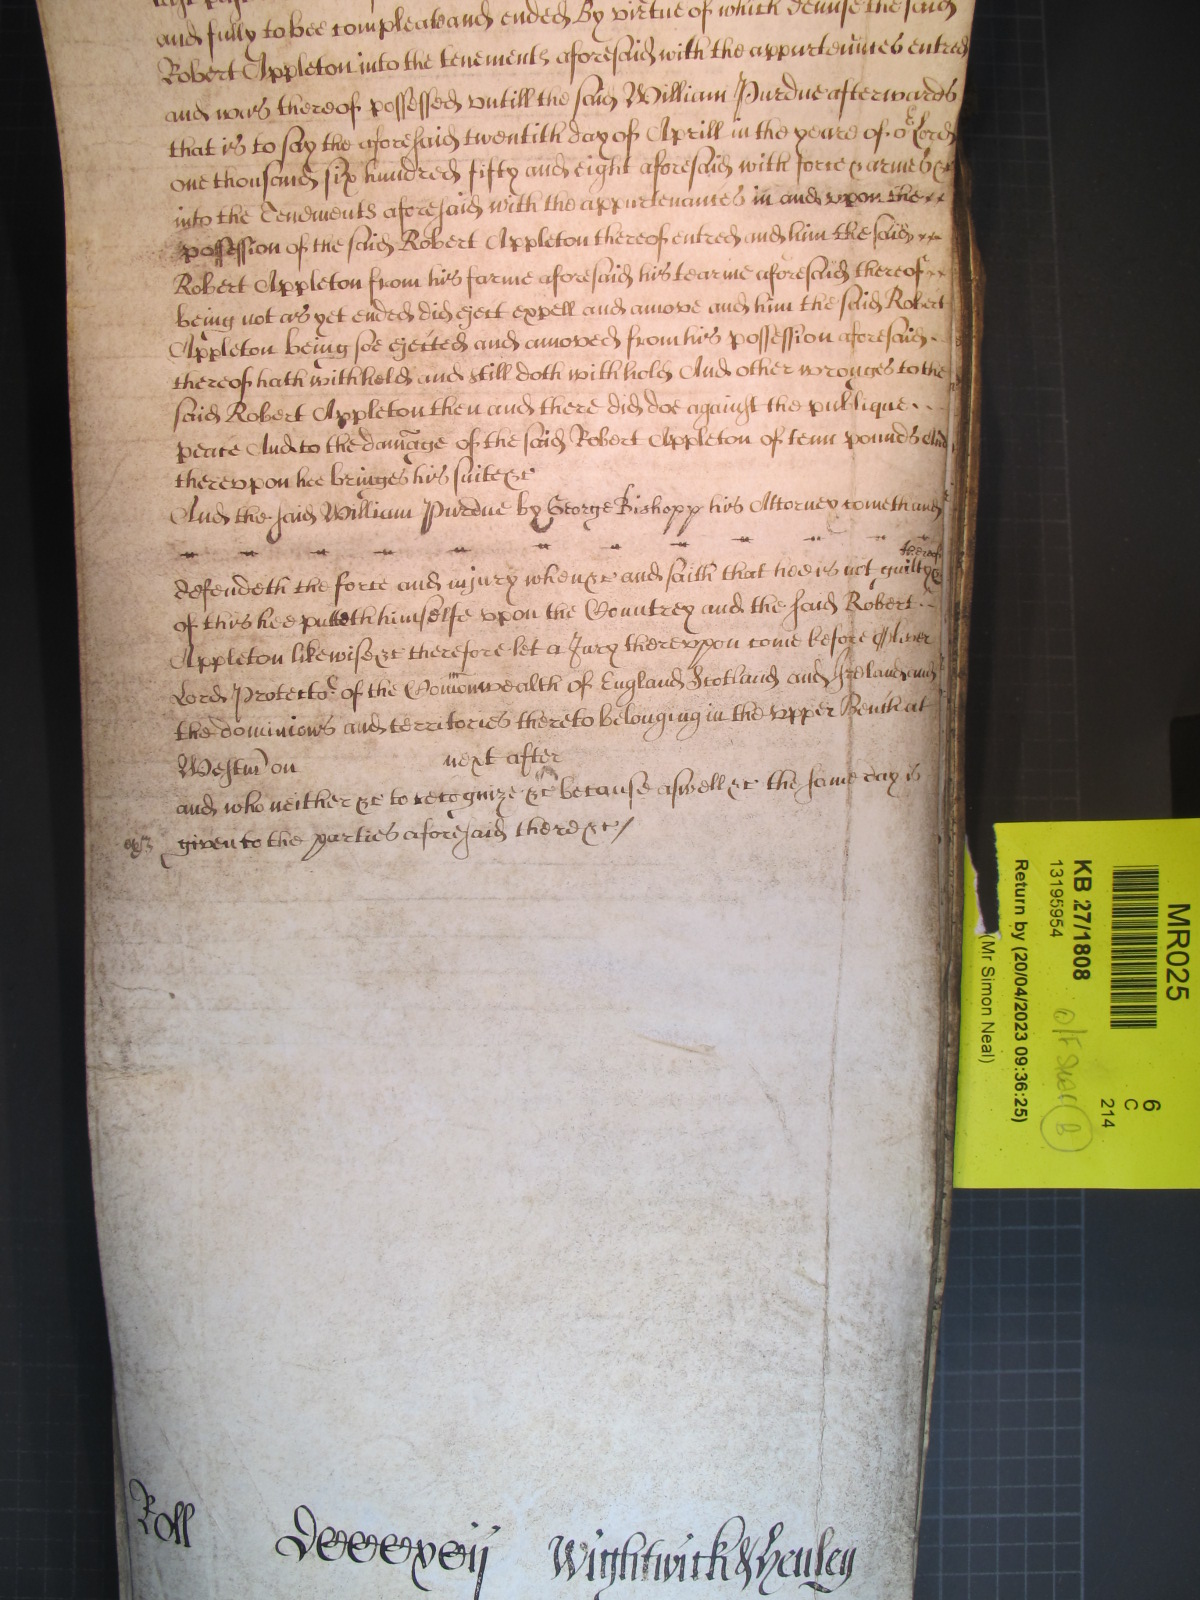 and fully to bee compleate and ended By virtue of which demise the said
Robert Appleton into the tenements aforesaid with the appurtennces entred
and was thereof possessed untill the said William Purdue afterwards
that is to say the aforesaid twentith day of Aprill in the yeare of or Lord
one thousand six hundred fifty and eight aforesaid with force & armes &c
into the Tenements aforesaid with the appurtenances in and upon the
possession of the said Robert Appleton thereof entred and him the said
Robert Appleton from his farme aforesaid his tearme aforesaid thereof
being not as yet ended did eject expell and amove and him the said Robert
Appleton being soe ejected and amoved from his possession aforesaid
thereof hath withheld and still doth withhold And other wronges to the
said Robert Appleton then and there did doe against the publique
peace And to the damage of the said Robert Appleton of tenn pounds And
thereupon hee bringes his suite &c
And the said William Purdue by George Bishopp his Attorney cometh and
defendeth the force and injury when &c and saith that hee is not guilty thereof &
of this hee putteth himselfe upon the Countrey and the said Robert
Appleton likewise &c therefore let a Jury thereuppon come before Oliver
Lord Protector of the Comonwealth of England Scotland and Ireland and
the dominions and territories thereto belonging in the upper Bench at
Westm on next after
and who neither &c to recognize &c because aswell &c the same day is
given to the parties aforesaid there &c/
Roll Wightwick & Henley
MR025
KB 27/1808
13195954
Return by (20/04/2023 09:36:25)
(Mr Simon Neal)
6
C
214
B